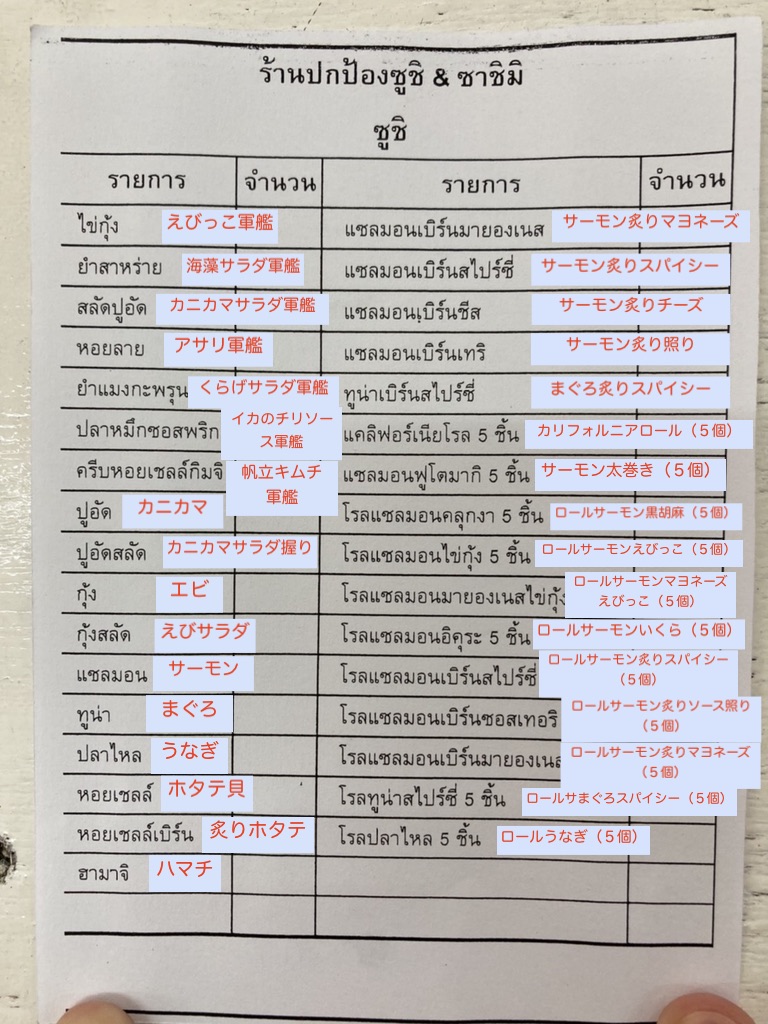 ร้านปกป้องซูชิ & ซาชิมิ
ซูชิ
รายการ จำนวน รายการ จำนวน
ไข่กุ้ง えびっこ軍艦 แซลมอนเบิร์นมายองเนส サーモン炙りマヨネーズ
ยำสาหร่าย 海藻サラダ軍艦 แซลมอนเบิร์นสไปร์ซี่ サーモン炙りスパイシー
สลัดปูอัด カニカマサラダ軍艦 แซลมอนเบิร์นชีส サーモン炙りチーズ
หอยลาย アサリ軍艦 แซลมอนเบิร์นเทริ サーモン炙り照り
ยำแมงกะพรุน くらげサラダ軍艦 ทูน่าเบิร์นสไปร์ซี่ まぐろ炙りスパイシー
ปลาหมึกซอสพริก イカのチリソース軍艦 แคลิฟอร์เนียโรล 5 ชิ้น カリフォルニアロール（５個）
ครีบหอยเชลล์กิมจิ 帆立キムチ軍艦 แซลมอนฟูโตมากิ 5 ชิ้น サーモン太巻き（５個）
ปูอัด カニカマ โรลแซลมอนคลุกงา 5 ชิ้น ロールサーモン黒胡麻（５個）
ปูอัดสลัด カニカマサラダ握り โรลแซลมอนไข่กุ้ง 5 ชิ้น ロールサーモンえびっこ（５個）
กุ้ง エビ โรลแซลมอนมายองเนสไข่กุ้ง ロールサーモンマヨネーズえびっこ（５個）
กุ้งสลัด えびサラダ โรลแซลมอนอิคุระ 5 ชิ้น ロールサーモンいくら（５個）
แซลมอน サーモン โรลแซลมอนเบิร์นสไปร์ซี่ ロールサーモン炙りスパイシー（５個）
ทูน่า まぐろ โรลแซลมอนเบิร์นซอสเทอริ ロールサーモン炙りソース照り（５個）
ปลาไหล うなぎ โรลแซลมอนเบิร์นมายองเนส ロールサーモン炙りマヨネーズ（５個）
หอยเชลล์ ホタテ貝 โรลทูน่าสไปร์ซี่ 5 ชิ้น ロールサまぐろスパイシー（５個）
หอยเชลล์เบิร์น 炙りホタテ โรลปลาไหล 5 ชิ้น ロールうなぎ（５個）
ฮามาจิ ハマチ